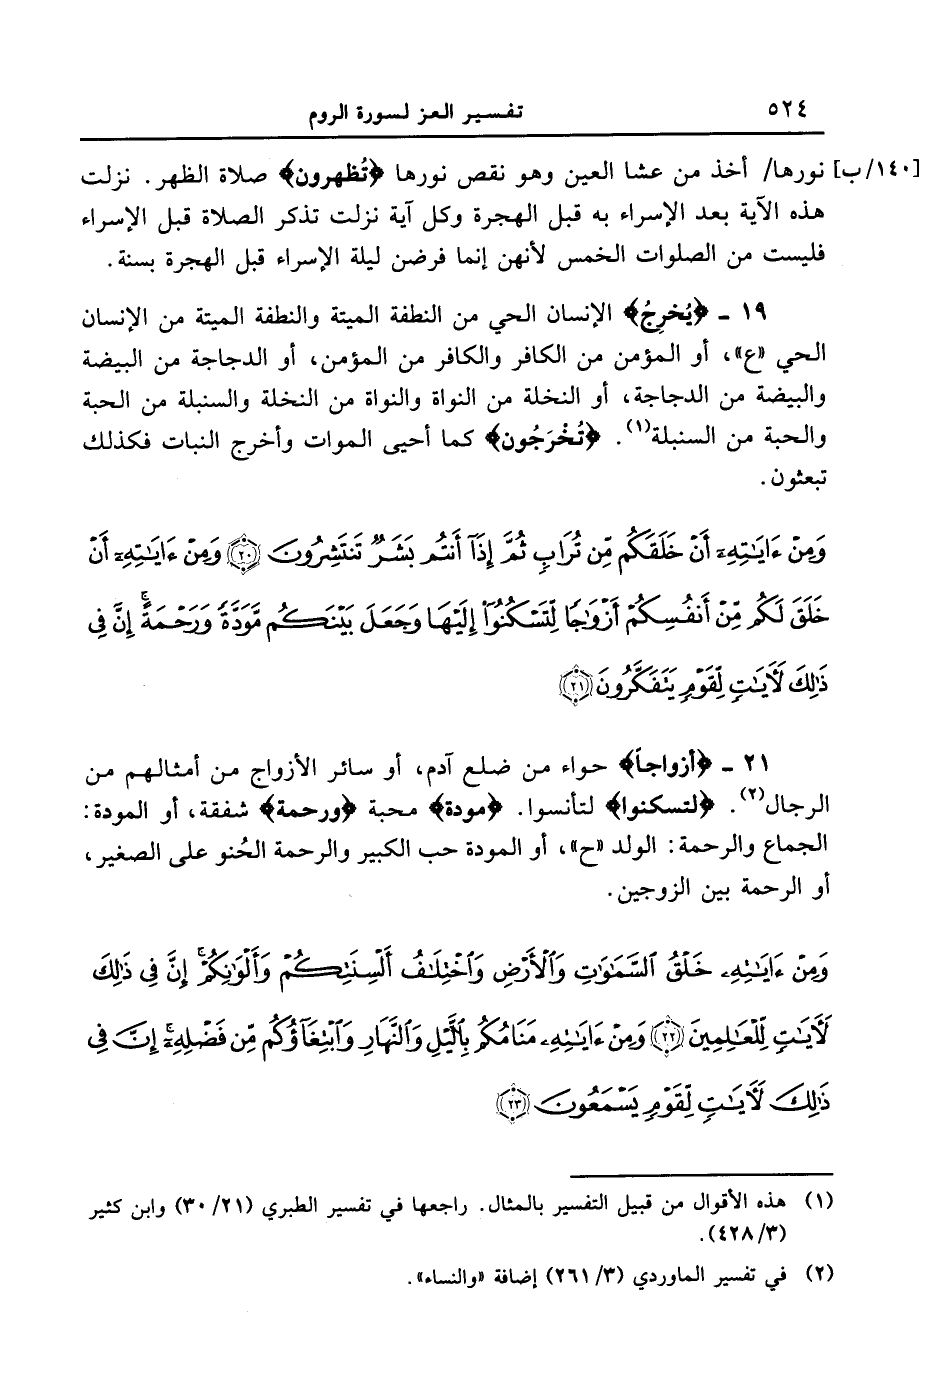 ٥٢٤ تفسير العز لسورة الروم
[١٤٠/ب] نورها/ أخذ من عشا العين وهو نقص نورها ﴿تُظهرون﴾ صلاة الظهر. نزلت
هذه الآية بعد الإسراء به قبل الهجرة وكل آية نزلت تذكر الصلاة قبل الإسراء
فليست من الصلوات الخمس لأنهن إنما فرضن ليلة الإسراء قبل الهجرة بسنة.
١٩ ـ ﴿يُخرِجُ﴾ الإنسان الحي من النطفة الميتة والنطفة الميتة من الإنسان
الحي «ع»، أو المؤمن من الكافر والكافر من المؤمن، أو الدجاجة من البيضة
والبيضة من الدجاجة، أو النخلة من النواة والنواة من النخلة والسنبلة من الحبة
والحبة من السنبلة(١). ﴿تُخْرَجُون﴾ كما أحيى الموات وأخرج النبات فكذلك
تبعثون.
وَمِنْ ءَايَٰتِهِۦٓ أَنْ خَلَقَكُم مِّن تُرَابٍ ثُمَّ إِذَآ أَنتُم بَشَرٌ تَنتَشِرُونَ ﴿٢٠﴾ وَمِنْ ءَايَٰتِهِۦٓ أَنْ
خَلَقَ لَكُم مِّنْ أَنفُسِكُمْ أَزْوَٰجًا لِّتَسْكُنُوٓا۟ إِلَيْهَا وَجَعَلَ بَيْنَكُم مَّوَدَّةً وَرَحْمَةً ۚ إِنَّ فِى
ذَٰلِكَ لَءَايَٰتٍ لِّقَوْمٍ يَتَفَكَّرُونَ ﴿٢١﴾
٢١ ـ ﴿أزواجاً﴾ حواء من ضلع آدم، أو سائر الأزواج من أمثالهم من
الرجال(٢). ﴿لتسكنوا﴾ لتأنسوا. ﴿مودة﴾ محبة ﴿ورحمة﴾ شفقة، أو المودة:
الجماع والرحمة: الولد «ح»، أو المودة حب الكبير والرحمة الحُنو على الصغير،
أو الرحمة بين الزوجين.
وَمِنْ ءَايَٰتِهِۦ خَلْقُ ٱلسَّمَٰوَٰتِ وَٱلْأَرْضِ وَٱخْتِلَٰفُ أَلْسِنَتِكُمْ وَأَلْوَٰنِكُمْ ۚ إِنَّ فِى ذَٰلِكَ
لَءَايَٰتٍ لِّلْعَٰلِمِينَ ﴿٢٢﴾ وَمِنْ ءَايَٰتِهِۦ مَنَامُكُم بِٱلَّيْلِ وَٱلنَّهَارِ وَٱبْتِغَآؤُكُم مِّن فَضْلِهِۦٓ ۚ إِنَّ فِى
ذَٰلِكَ لَءَايَٰتٍ لِّقَوْمٍ يَسْمَعُونَ ﴿٢٣﴾
(١) هذه الأقوال من قبيل التفسير بالمثال. راجعها في تفسير الطبري (٣٠/٢١) وابن كثير
(٤٢٨/٣).
(٢) في تفسير الماوردي (٢٦١/٣) إضافة «والنساء».